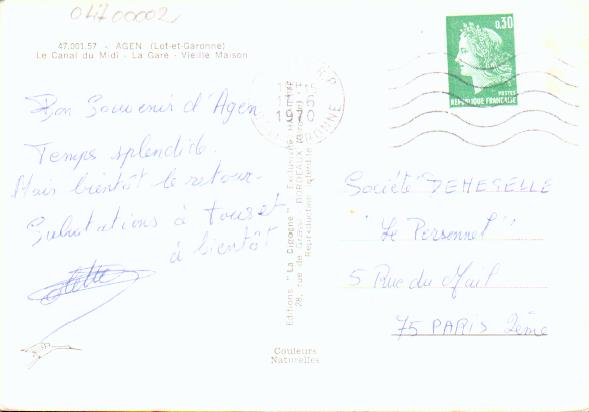 04700002
47.001.57 - AGEN (Lot-et-Garonne)
Le Canal du Midi - La Gare - Vieille Maison
Bon Souvenir d'Agen
Temps splendide.
Mais bientôt le retour.
Salutations à tous et
à bientôt
0,30
POSTES
REPUBLIQUE FRANÇAISE
R.P.
1970
GARONNE
Editions "La Cigogne"
28, rue de Grassi - BORDEAUX
Reproduction interdite
Société DEHESELLE
"Le Personnel"
5 Rue du Mail
75 PARIS 2ème
Couleurs
Naturelles